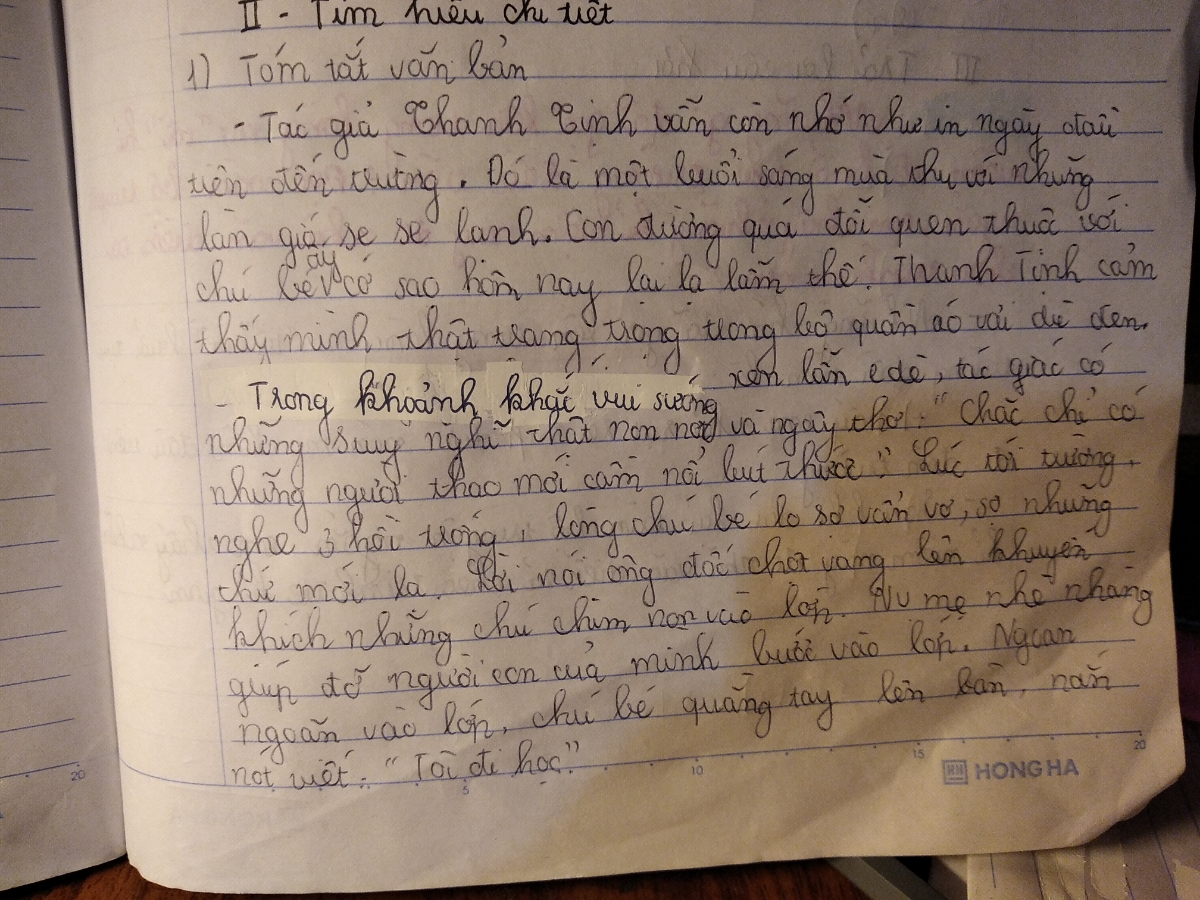 II - Tìm hiểu chi tiết
1) Tóm tắt văn bản
- Tác giả Thanh Tịnh vẫn còn nhớ như in ngày đầu
tiên đến trường. Đó là một buổi sáng mùa thu với những
làn gió se se lạnh. Con đường quá đỗi quen thuộc với
ấy
chú bé v cớ sao hôm nay lại lạ lẫm thế. Thanh Tịnh cảm
thấy mình thật trang trọng trong bộ quần áo vải dù đen.
- Trong khoảnh khắc vui sướng xen lẫn e dè, tác giả có
những suy nghĩ thật non nớt và ngây thơ: "Chắc chỉ có
những người thạo mới cầm nổi bút thước" Lúc tới trường,
nghe 3 hồi trống, lòng chú bé lo sợ vẩn vơ, sợ những
thứ mới lạ. Lời nói ông đốc chợt vang lên khuyến
khích những chú chim non vào lớp. Nụ mẹ nhẹ nhàng
giúp đỡ người con của mình bước vào lớp. Ngoan
ngoãn vào lớp, chú bé quàng tay lên bàn, nắn
nót viết: "Tôi đi học."
5 10 15 20
HONG HA
20